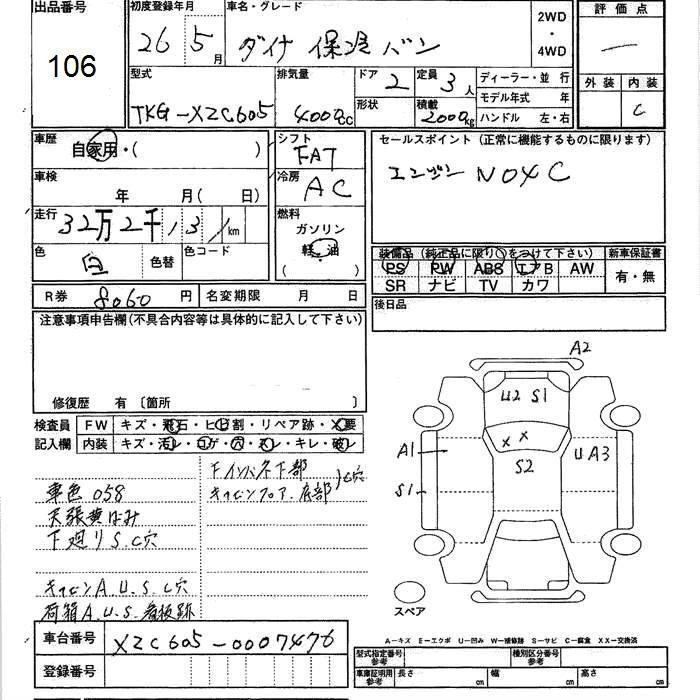 出品番号
106
初度登録年月
26 5月
車名・グレード
ダイナ 保冷バン
2WD
・
4WD
評価点
—
外装 内装
C
型式
TKG-XZC605
排気量
4000cc
ドア
2
形状
定員
3人
積載
2000kg
ディーラー・並行
モデル年式 年
ハンドル 左・右
車歴
自家用・( )
車検
年 月(日)
走行
32万2千,3 km
色
白
色替
色コード
シフト
FAT
冷房
AC
燃料
ガソリン
軽油
( )
セールスポイント(正常に機能するものに限ります)
エンジン N04C
装備品(純正品に限り○をつけて下さい)
新車保証書
PS PW ABS エアB AW
SR ナビ TV カワ
有・無
R券 8060円
名変期限 月 日
後日品
注意事項申告欄(不具合内容等は具体的に記入して下さい)
修復歴 有 〔箇所 〕
検査員
記入欄
FW キズ・飛石・ヒビ割・リペア跡・X要
内装 キズ・汚レ・コゲ・穴・スレ・キレ・破レ
車色058
天張黄ばみ
下廻りS.C穴
キャビンA.U.S.C穴
荷箱A.U.S.看板跡
下インパネ下部
キャビンフロア.底部
C穴
A2
U2 S1
X X
S2
A1
S1
UA3
スペア
A-キズ E-エクボ U-凹み W-補修跡 S-サビ C-腐食 XX-交換済
車台番号 XZC605-0007476
登録番号
型式指定番号
参考
種別区分番号
参考
車庫証明用
参考
長さ cm
幅 cm
高さ cm